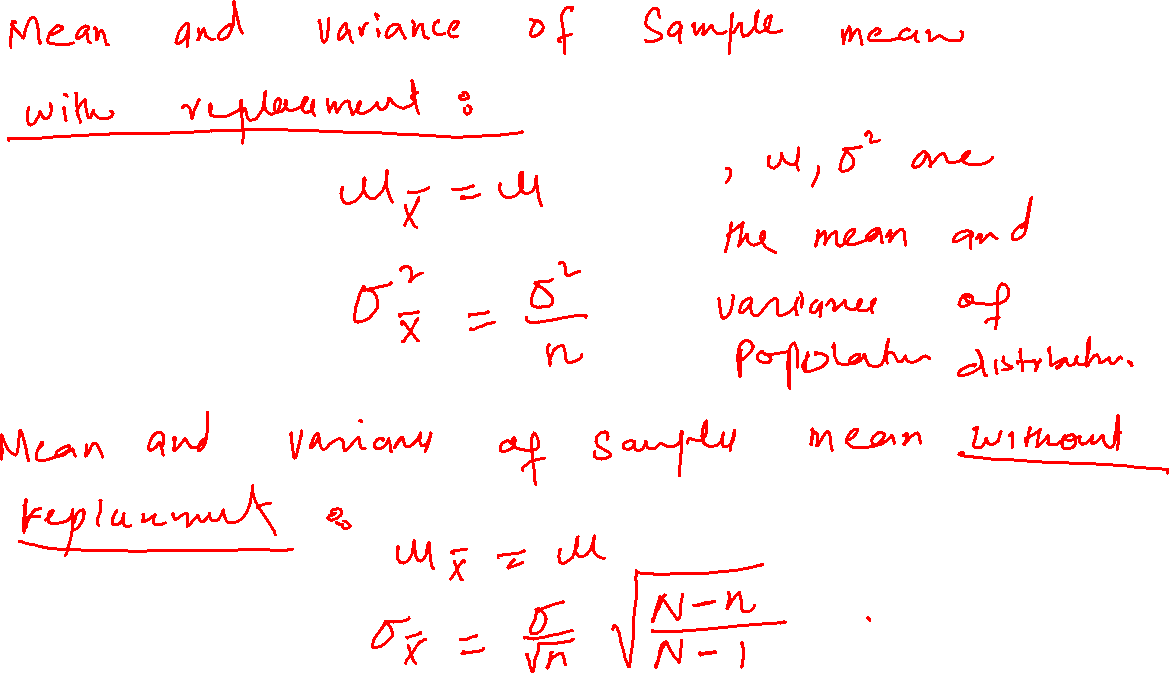 Mean and variance of Sample mean
with replacement :
μ_x̄ = μ , μ, σ² are
the mean and
σ²_x̄ = σ²/n variance of
Population distribution.
Mean and variance of Sample mean without
replacement :
μ_x̄ = μ
σ_x̄ = σ/√n √((N-n)/(N-1)) .